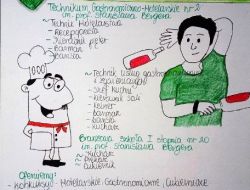 Technikum Gastronomiczno-Hotelarskie nr 2
im. prof. Stanisława Bergera
Technik Hotelarstwa
- Recepcjonista
- Kierownik pięter
- Barman
- Barista
1000
- Technik usług gastronomicznych
- szef kuchni
- kierownik sali
- kelner
- barman
- barista
- kucharz
Branżowa Szkoła I stopnia nr 20
im. prof. Stanisława Bergera
- kucharz
- cukiernik
Oferujemy:
- konkursy: Hotelarskie, Gastronomiczne, Cukiernicze